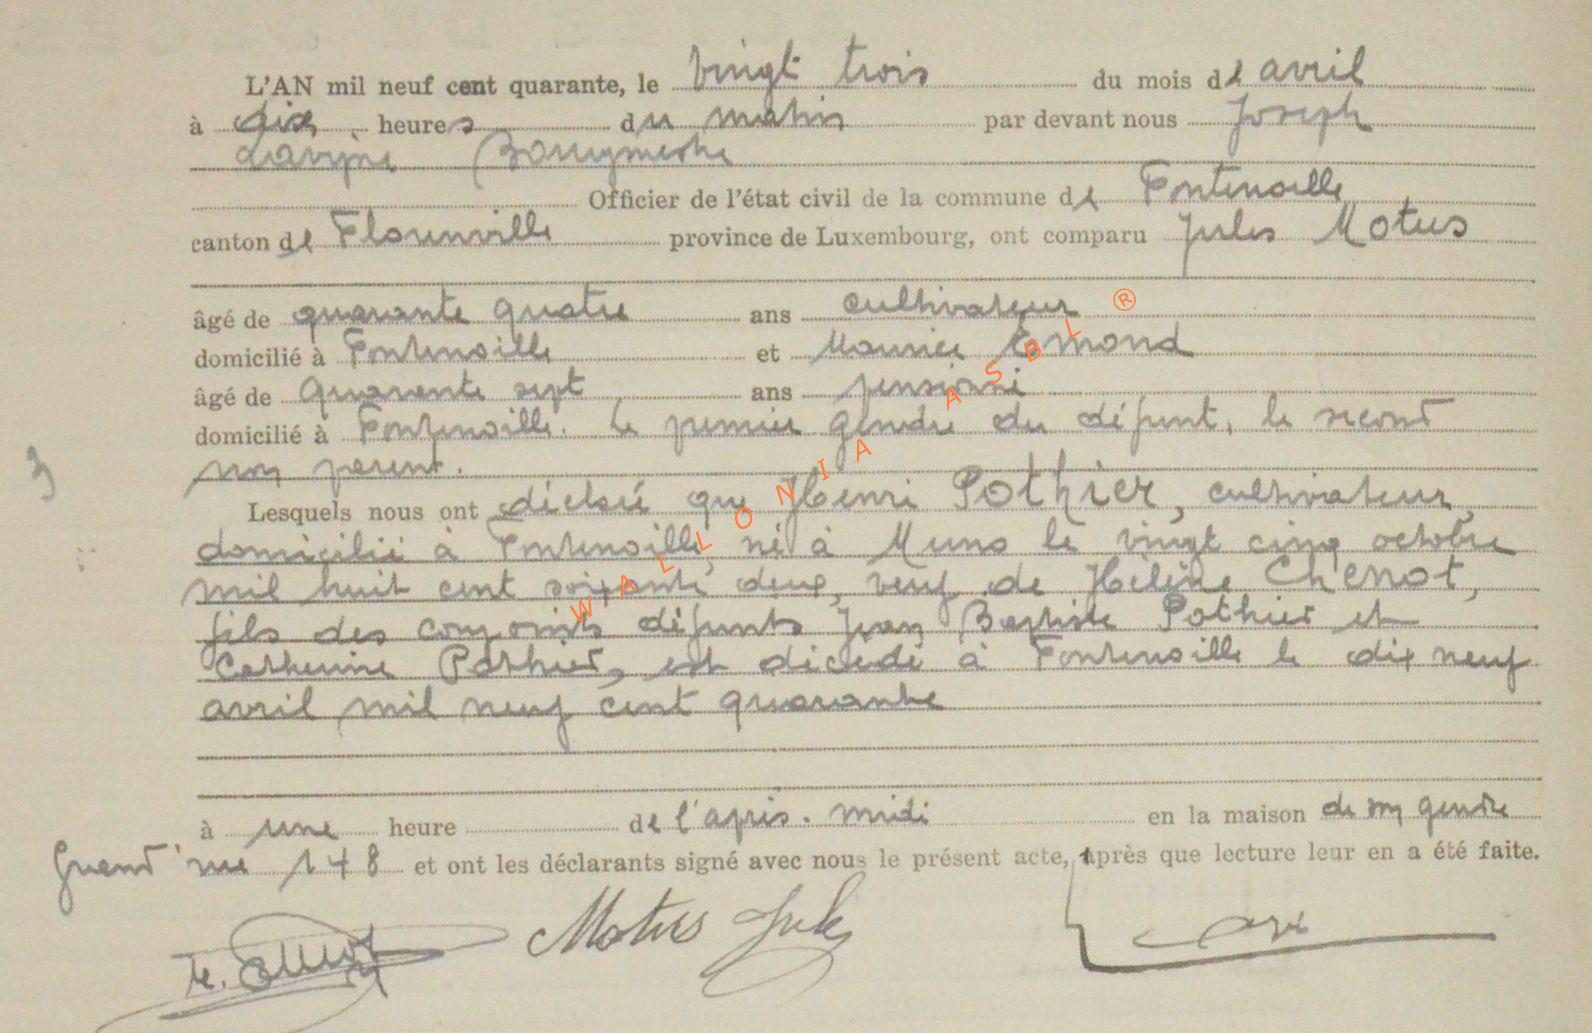 L'AN mil neuf cent quarante, le vingt trois du mois de avril
à dix heures du matin par devant nous Joseph
Lavigne Bourgmestre
Officier de l'état civil de la commune de Fontenoille
canton de Florenville province de Luxembourg, ont comparu Jules Motus
âgé de quarante quatre ans cultivateur
domicilié à Fontenoille et Maurice Emond
âgé de quarante sept ans pensionné
domicilié à Fontenoille. Le premier gendre du défunt, le second
non parent.
3
Lesquels nous ont déclaré que Henri Pothier, cultivateur,
domicilié à Fontenoille, né à Muno le vingt cinq octobre
mil huit cent soixante deux, veuf de Hélène Chenot,
fils des conjoints défunts Jean Baptiste Pothier et
Catherine Pothier, est décédé à Fontenoille le dix neuf
avril mil neuf cent quarante
à une heure de l'après-midi en la maison de son gendre
Grand'rue 148 et ont les déclarants signé avec nous le présent acte, après que lecture leur en a été faite.
Motus Jules
WALLONIA ASBL ®